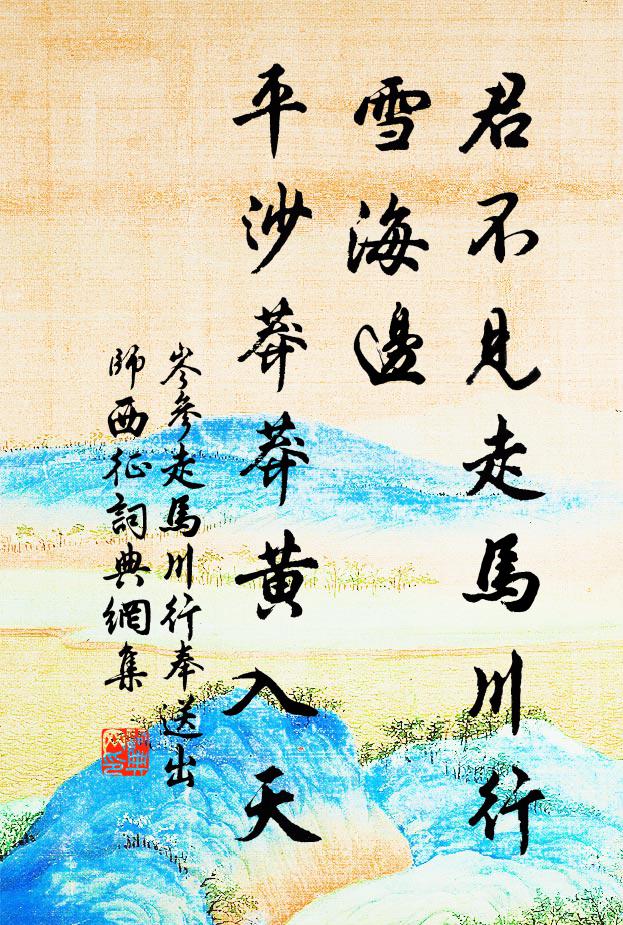 君不見走馬川行
雪海邊
平沙莽莽黃入天
岑參走馬川行奉送出
師西征詞典網集